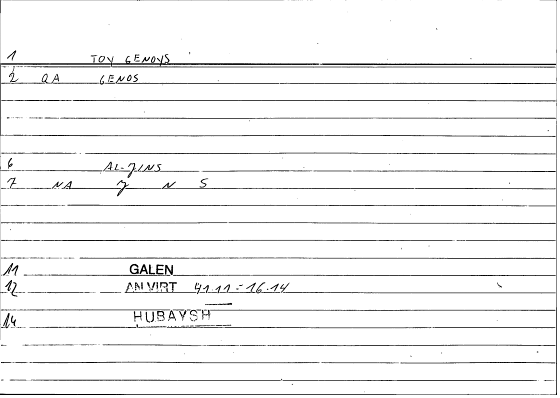 1 TOY GENOYS
2 QA GENOS
6 AL-JINS
7 NA J N S
11 GALEN
12 AN VIRT 41.11 = 16.14
14 HUBAYSH